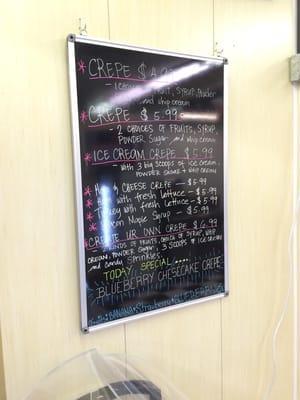 * CREPE $4.99
FRUIT, SYRUP, Powder
and whip cream
* CREPE $5.99
- 2 CHOICES OF FRUITS, SYRUP,
POWDER Sugar and whip cream
* ICE CREAM CREPE $5.99
- with 3 big scoops of ice cream,
POWDER SUGAR + whip cream
* & CHEESE CREPE - $5.99
* with fresh lettuce - $5.99
* Turkey with fresh Lettuce - $5.99
* Bacon Maple Syrup - $5.99
* CREATE UR OWN CREPE $6.99
OF FRUITS, CHOICE OF SYRUP, WHIP
CREAM, POWDER Sugar, 3 SCOOPS OF ICE CREAM
and Candy Sprinkles
TODAY SPECIAL....
BLUEBERRY CHESECAKE CREPE
Fruits: BANANA Strawberry